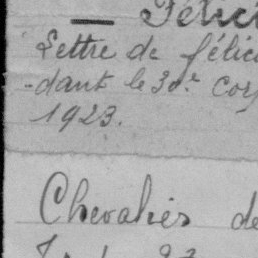 — Félici
Lettre de félici
-dant le 30.e Corp
1923.
Chevaliers de